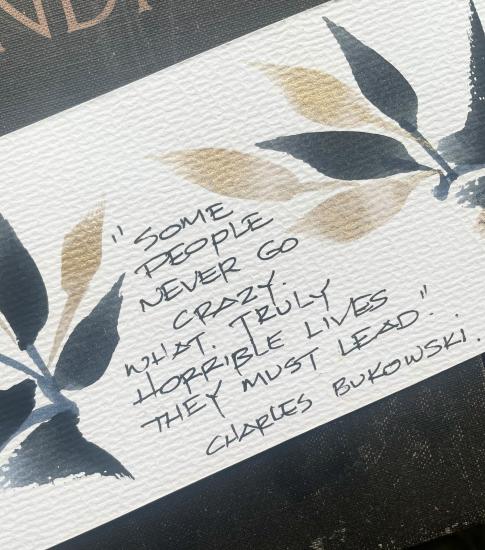 "SOME
PEOPLE
NEVER GO
CRAZY.
WHAT. TRULY
HORRIBLE LIVES
THEY MUST LEAD".
CHARLES BUKOWSKI.